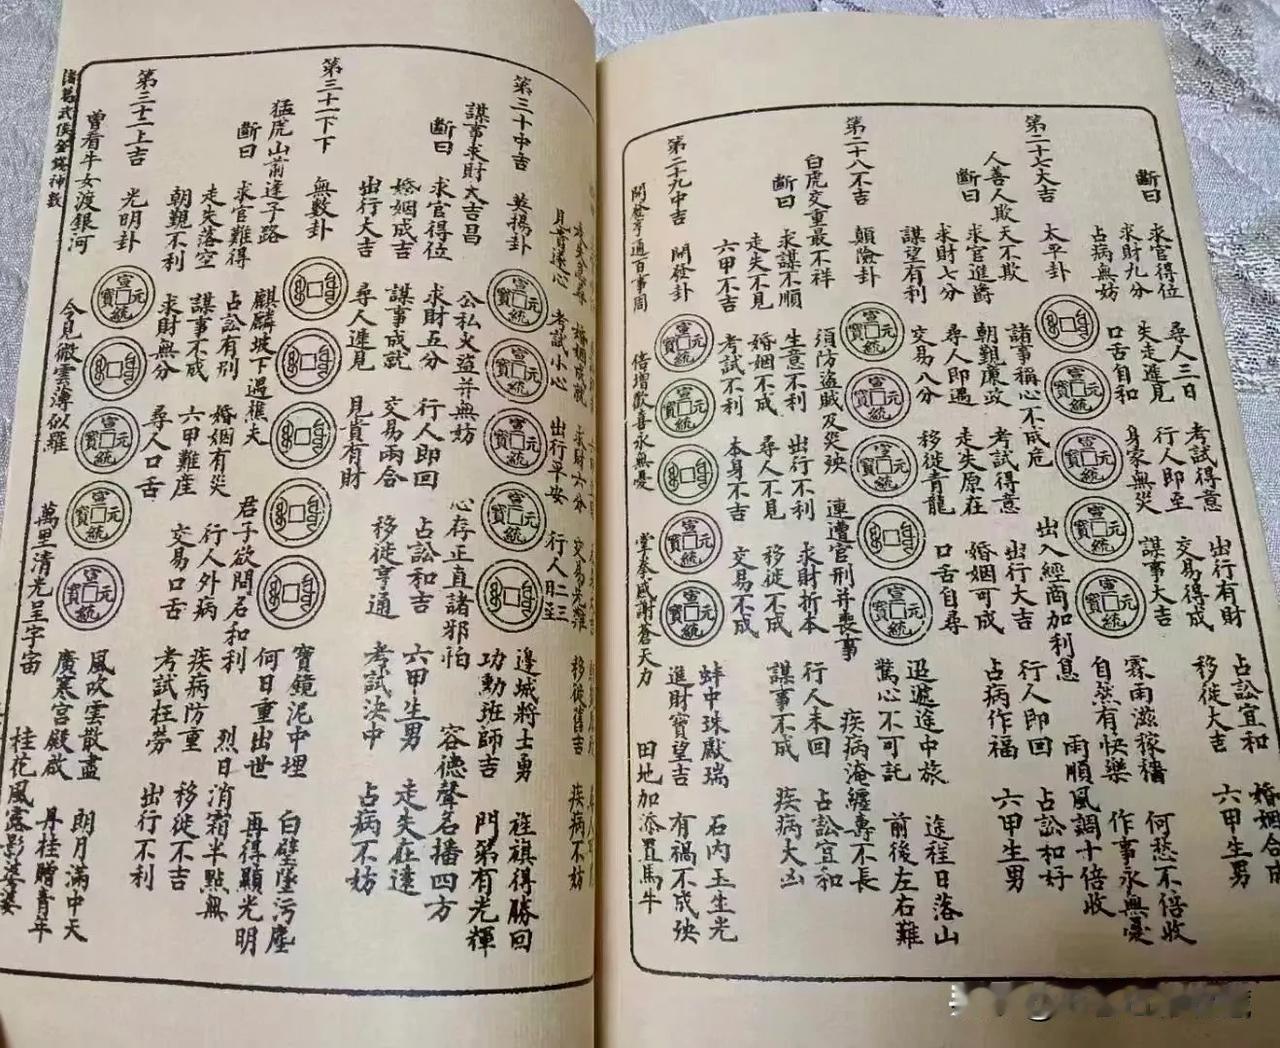 斷曰
求官得位 尋人三日 考試得意 出行有財 占訟宜和 婚姻合成
求財九分 失走進見 行人即至 交易得成 移徙大吉 六甲生男
占病無妨 口舌自和 身家無災 謀事大吉
第二十七大吉 太平卦
宣統元寶
宣統元寶
宣統元寶
宣統元寶
霖雨滋稼穡 何愁不倍收
自然有快樂 作事永無憂
人善人欺天不欺 諸事稱心不成危 出入經商加利息 雨順風調十倍收
斷曰
求官進爵 朝覲廉政 考試得意 出行大吉 行人即回 占訟和好
求財七分 尋人即遇 走失原在 婚姻可成 占病作福 六甲生男
謀望有利 交易八分 移徙青龍 口舌自尋
第二十八不吉 顛險卦
宣統元寶
宣統元寶
宣統元寶
宣統元寶
迢遞途中旅 途程日落山
驚心不可託 前後左右難
白虎交重最不祥 須防盜賊及災殃 連遭官刑并喪事 疾病淹纏壽不長
斷曰
求謀不順 生意不利 出行不利 求財折本 行人未回 占訟宜和
走失不見 婚姻不成 尋人不見 移徙不成 謀事不成 疾病大凶
六甲不吉 考試不利 本身不吉 交易不成
第二十九中吉 開發卦
宣統元寶
宣統元寶
宣統元寶
宣統元寶
蚌中珠獻瑞 石內玉生光
進財寶望吉 有禍不成殃
開發亨通百事周 倍增歡喜永無憂 掌拳感謝蒼天力 田地加添置馬牛
婚姻成就 求財六分 交易先難 移徙舊吉
見貴遂心 考試小心 出行平安 行人二三日至 疾病不妨
第三十中吉 英揚卦
宣統元寶
宣統元寶
宣統元寶
宣統元寶
邊城將士勇 旌旗得勝回
功勳班師吉 門第有光輝
謀事求財大吉昌 公私火盜并無妨 心存正直諸邪怕 容德聲名播四方
斷曰
求官得位 求財五分 行人即回 占訟和吉 六甲生男 走失在遠
婚姻成吉 謀事成就 交易兩合 移徙亨通 考試決中 占病不妨
出行大吉 尋人連見 見貴有財
第三十一下下 無數卦
寶鏡泥中埋 白璧墜污塵
何日重出世 再得顯光明
猛虎山前逢子路 麒麟坡下遇樵夫 君子欲問名和利 烈日消霜半點無
斷曰
求官難得 占訟有別 婚姻有災 行人外病 疾病防重 移徙不吉
走失落空 謀事不成 六甲難産 交易口舌 考試枉勞 出行不利
朝覲不利 求財無分 尋人口舌
第三十二上吉 光明卦
宣統元寶
宣統元寶
宣統元寶
宣統元寶
風吹雲散盡 朗月滿中天
廣寒宮殿啟 丹桂贈青年
曾看牛女渡銀河 今見微雲薄似羅 萬里清光呈宇宙 桂花風露影婆娑
諸葛武侯金錢神數